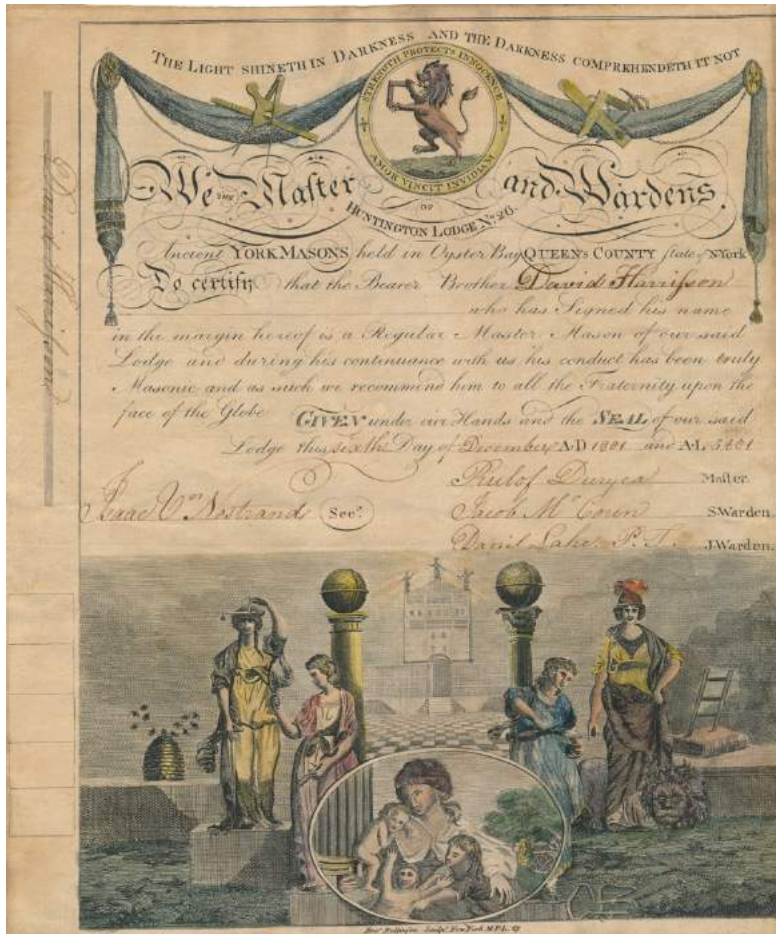 THE LIGHT SHINETH IN DARKNESS AND THE DARKNESS COMPREHENDETH IT NOT
STRENGTH PROTECTS INNOCENCE
AMOR VINCIT INVIDIAM
We THE Master and Wardens.
OF
HUNTINGTON LODGE No. 26.
Ancient YORK MASONS held in Oyster Bay QUEENS COUNTY State of NYork
Do certify that the Bearer Brother David Harrisson
who has Signed his name
in the margin hereof is a Regular Master Mason of our said
Lodge and during his continuance with us his conduct has been truly
Masonic and as such we recommend him to all the Fraternity upon the
face of the Globe GIVEN under our Hands and the SEAL of our said
Lodge this sixth Day of December A.D 1801 and A.L 5801
Rulof Duryea Master
Isaac Vn Nostrand Secy.
Jacob Mc Coun S.Warden.
Daniel Lake. P. T. J.Warden.
David Harrisson
Sculpt. New York